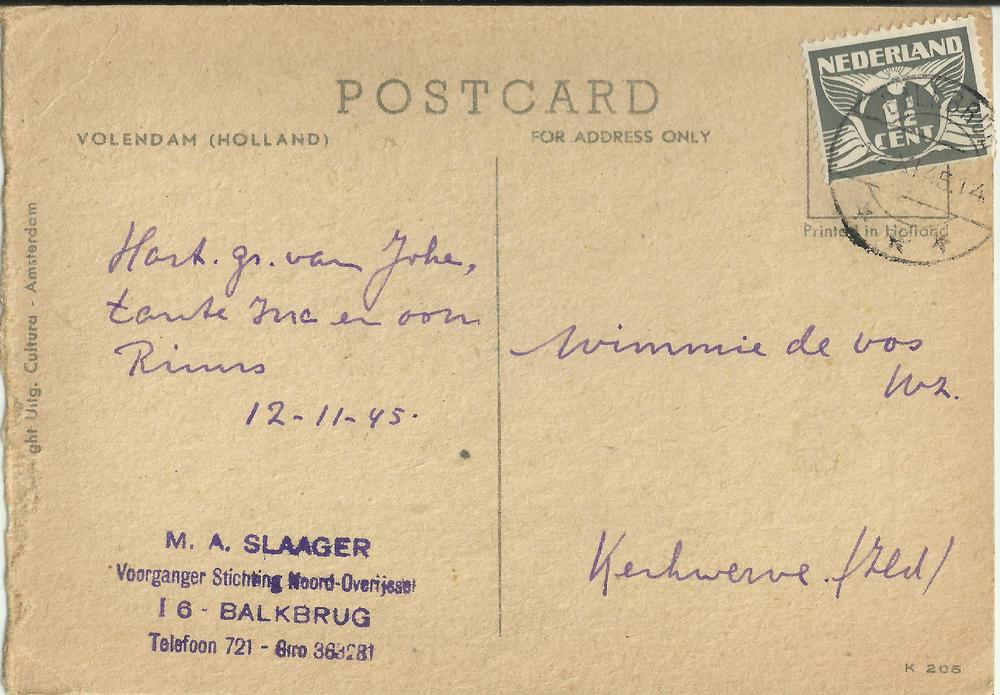 POSTCARD
VOLENDAM (HOLLAND)
FOR ADDRESS ONLY
NEDERLAND
CENT
Printed in Holland
ght Uitg. Cultura - Amsterdam
Hart. gr. van Joke,
tante Ina en oom
Rinus
12-11-45.
Wimmie de vos
Wz.
Kerkwerve. (Zld)
M. A. SLAAGER
Voorganger Stichting Noord-Overijssel
I 6 - BALKBRUG
Telefoon 721 - Giro 363281
K 205